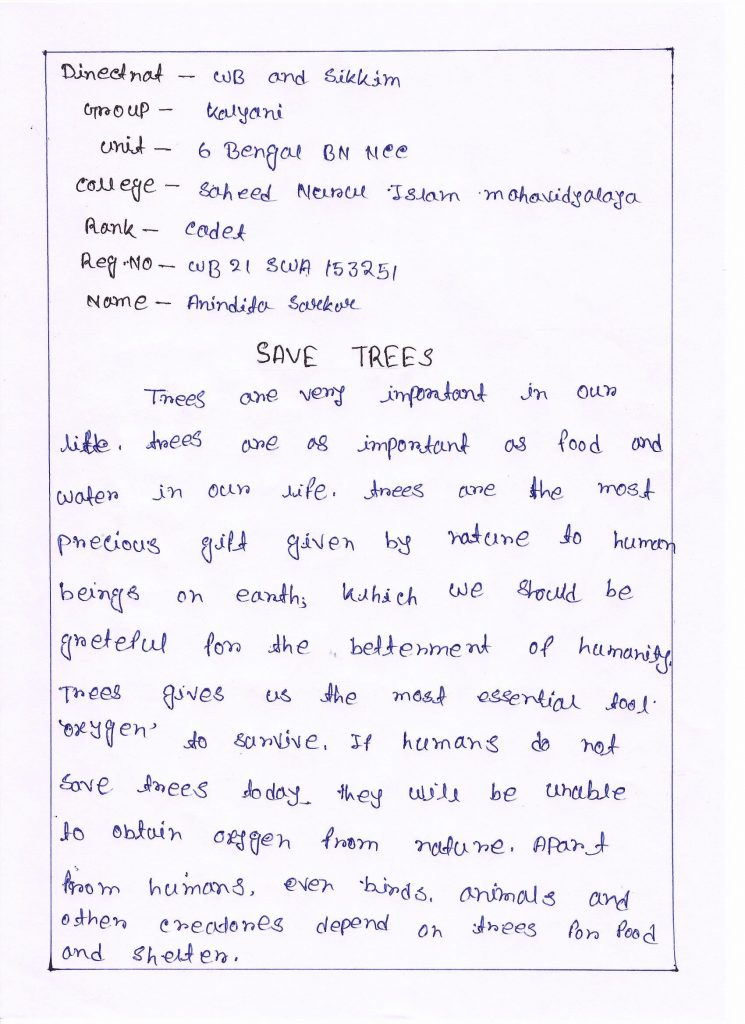 Directrat – WB and Sikkim
Group – Kalyani
Unit – 6 Bengal BN NCC
College – Saheed Nurul Islam mahavidyalaya
Rank – Cadet
Reg.No – WB 21 SWA 153251
Name – Anindita Sarkar
SAVE TREES
Trees are very important in our
life. trees are as important as food and
water in our life. trees are the most
precious gift given by nature to human
beings on earth; which we should be
greteful for the betterment of humanity.
Trees gives us the most essential tool
'oxygen' to survive. If humans do not
save trees today they will be unable
to obtain oxygen from nature. Apart
from humans, even birds, animals and
other creatores depend on trees for food
and shelter.